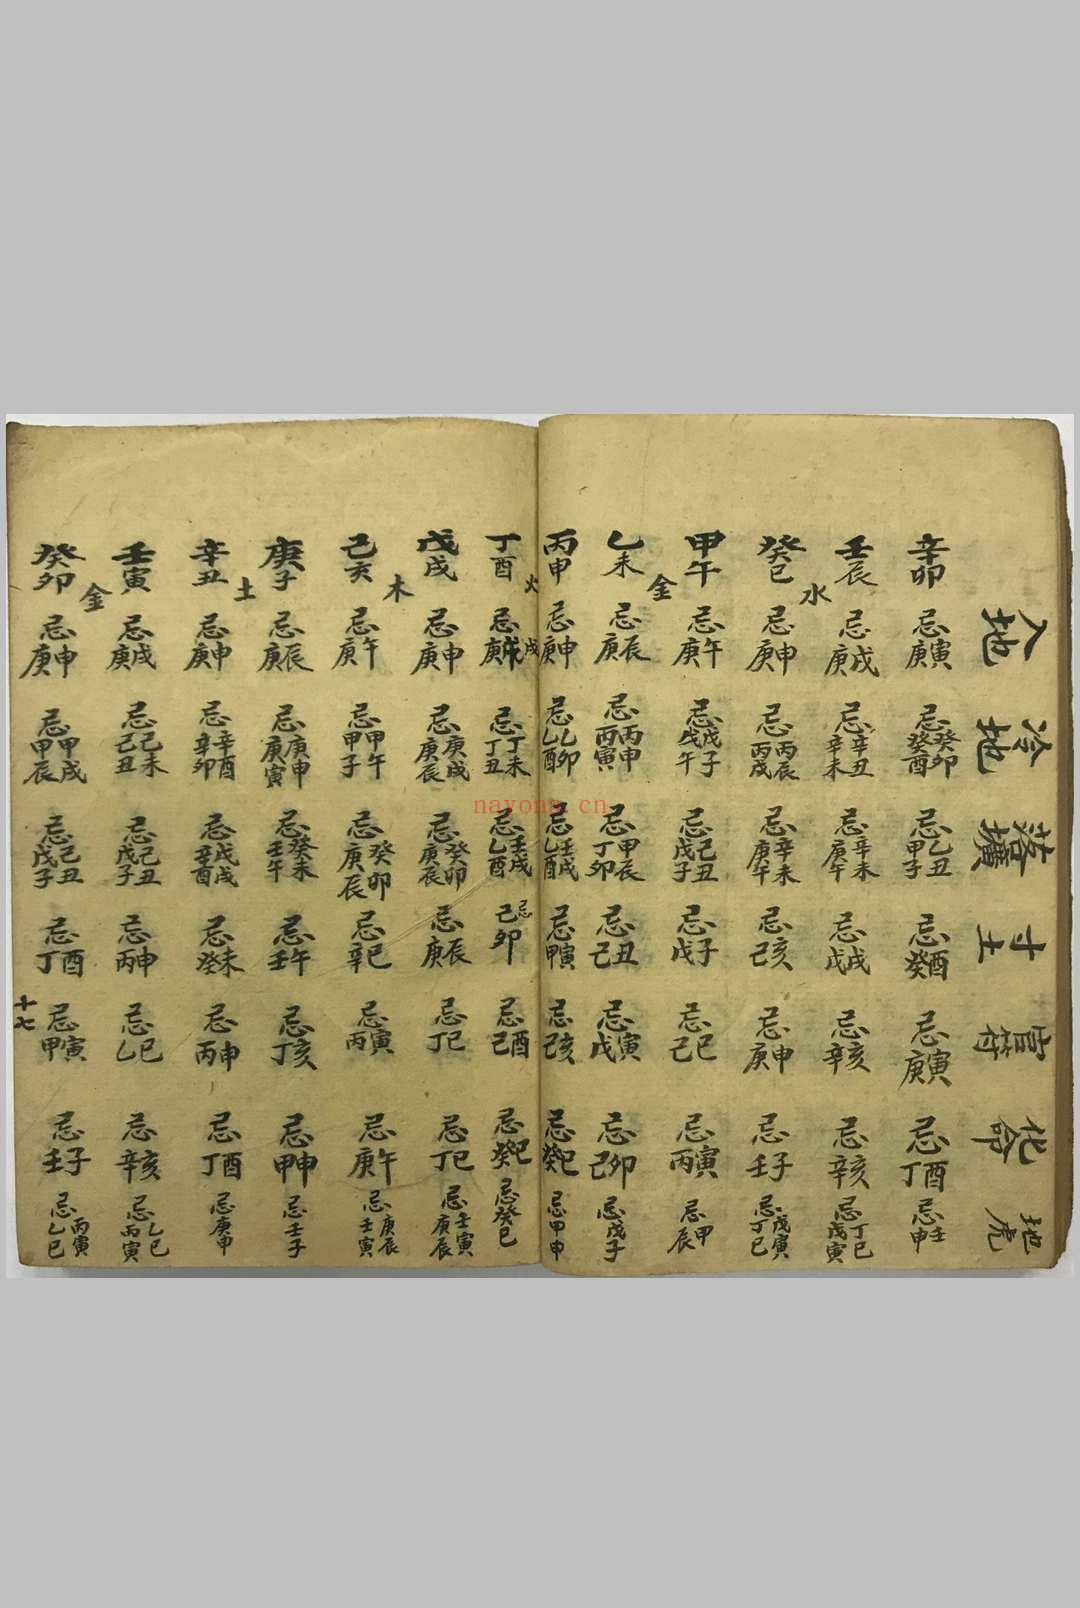 入地 冷地 落壙 寸土 官符 化命 地虎
辛卯 忌庚寅 忌癸卯癸酉 忌乙丑甲子 忌癸酉 忌庚寅 忌丁酉 忌壬申
壬辰 忌庚戌 忌辛丑辛未 忌辛未庚午 忌戊戌 忌辛亥 忌辛亥 忌丁巳戊寅
水
癸巳 忌庚申 忌丙辰丙戌 忌辛未庚午 忌己亥 忌庚申 忌壬子 忌戊寅丁巳
甲午 忌庚午 忌戊子戊午 忌己丑戊子 忌戊子 忌己巳 忌丙寅 忌甲辰
金
乙未 忌庚辰 忌丙申丙寅 忌甲辰丁卯 忌己丑 忌戊寅 忌己卯 忌戊子
丙申 忌庚申 忌乙卯乙酉 忌壬戌乙酉 忌甲寅 忌己亥 忌癸巳 忌甲申
火
丁酉 忌庚戌 戌 忌丁未丁丑 忌壬戌乙酉 忌己卯 忌己酉 忌癸巳 忌癸巳
戊戌 忌庚申 忌庚戌庚辰 忌癸卯庚辰 忌庚辰 忌丁巳 忌丁巳 忌壬寅庚辰
木
己亥 忌庚午 忌甲午甲子 忌癸卯庚辰 忌辛巳 忌丙寅 忌庚午 忌庚辰壬寅
庚子 忌庚辰 忌庚申庚寅 忌癸未壬午 忌壬午 忌丁亥 忌甲申 忌壬子
土
辛丑 忌庚申 忌辛酉辛卯 忌戊戌辛酉 忌癸未 忌丙申 忌丁酉 忌庚申
壬寅 忌庚戌 忌己未己丑 忌己丑戊子 忌丙申 忌乙巳 忌辛亥 忌乙巳丙寅
金
癸卯 忌庚申 忌甲戌甲辰 忌己丑戊子 忌丁酉 忌甲寅 忌壬子 忌丙寅乙巳
十七
nayona.cn